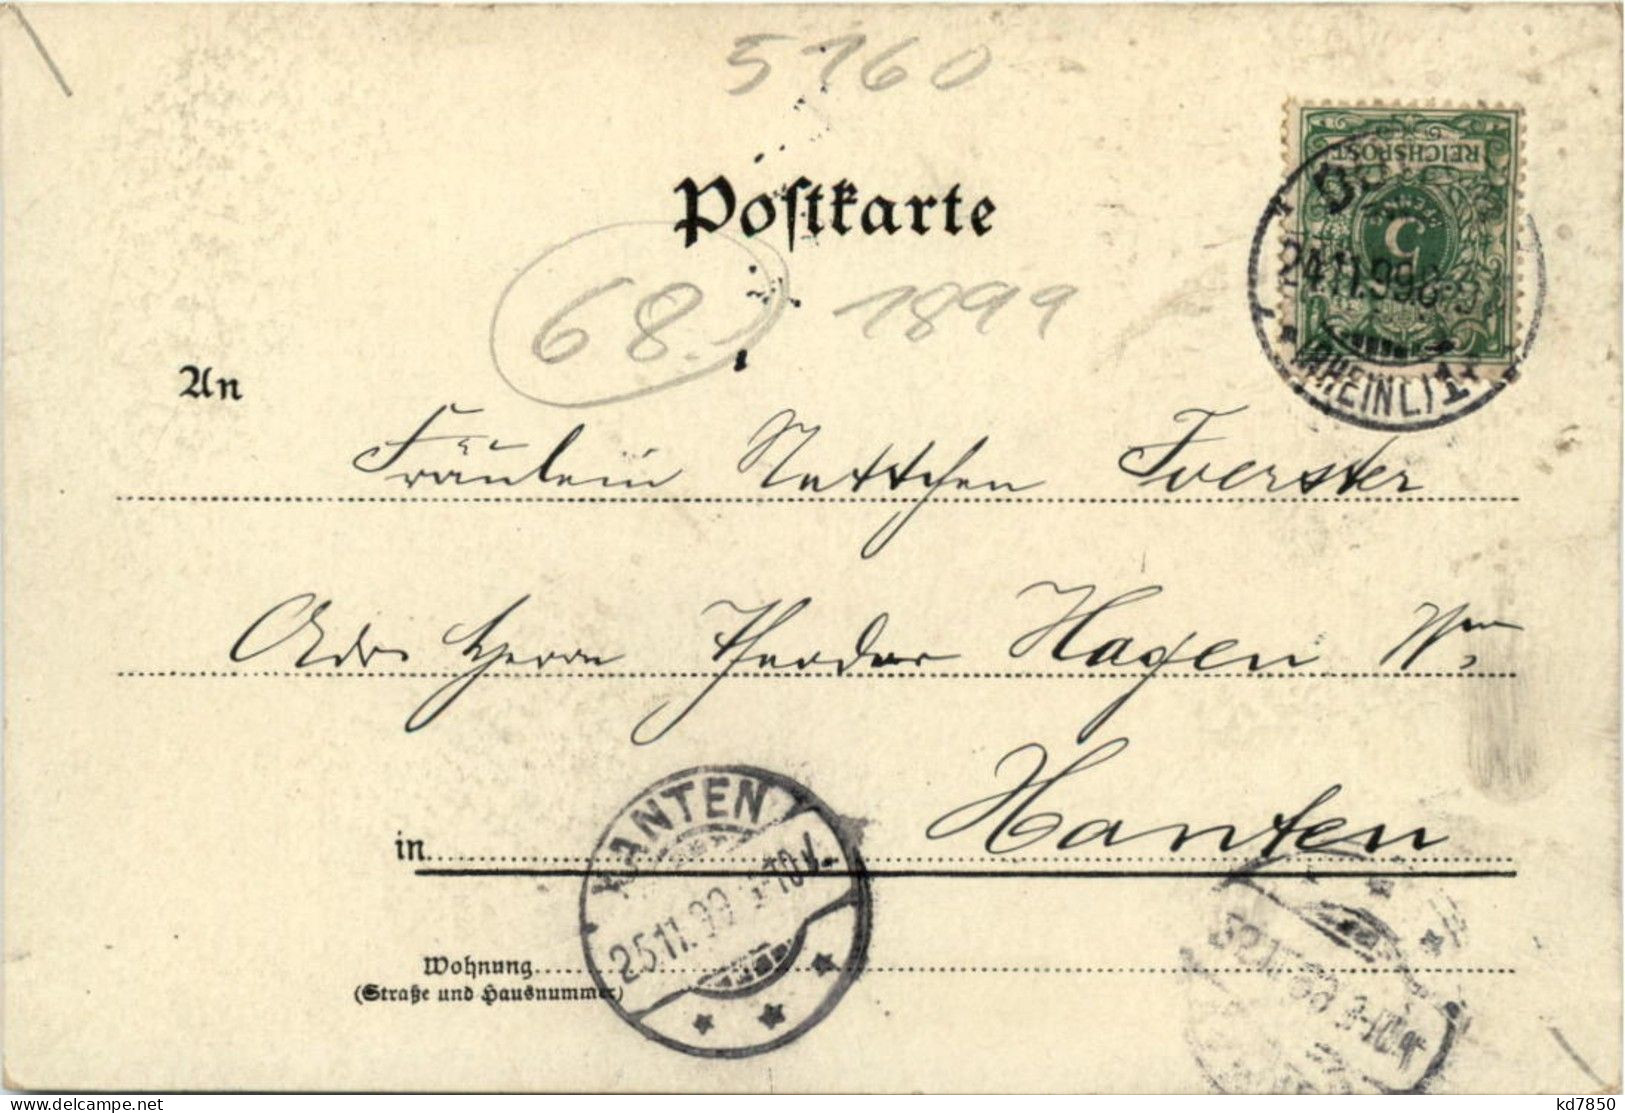 5160
Postkarte
REICHSPOST
5
24.11.99.
(RHEINL) 1
68.
1899
An
Fräulein Nettchen Foerster
Adr. Herrn Theodor Hagen Wwe
Xanten
in
XANTEN
25.11.99
Wohnung
(Straße und Hausnummer)
delcampe.net
kd7850